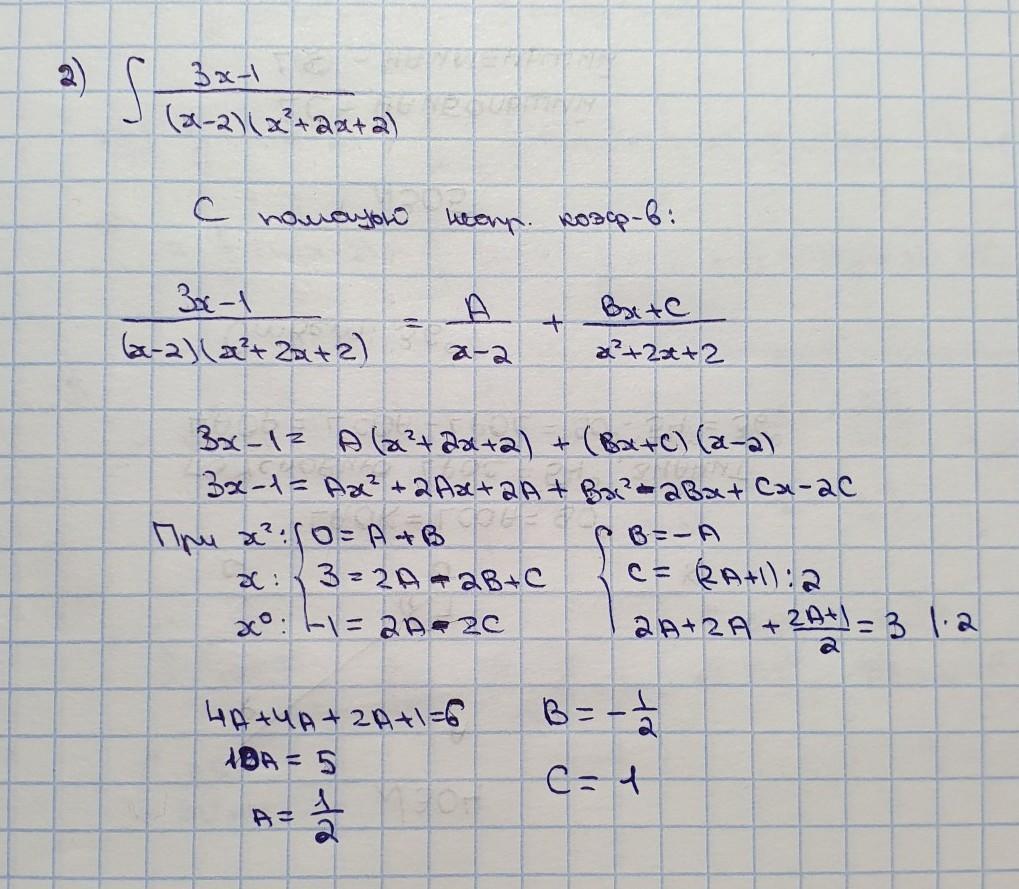 2) ∫ (3x-1)/((x-2)(x²+2x+2))
С помощью неопр. коэф-в:
(3x-1)/((x-2)(x²+2x+2)) = A/(x-2) + (Bx+C)/(x²+2x+2)
3x-1 = A(x²+2x+2) + (Bx+C)(x-2)
3x-1 = Ax²+2Ax+2A+Bx²-2Bx+Cx-2C
При x²: { 0 = A+B { B = -A
x: 3 = 2A-2B+C C = (2A+1):2
x⁰: -1 = 2A-2C 2A+2A+(2A+1)/2 = 3 |·2
4A+4A+2A+1=6 B = -1/2
10A = 5 C = 1
A = 1/2